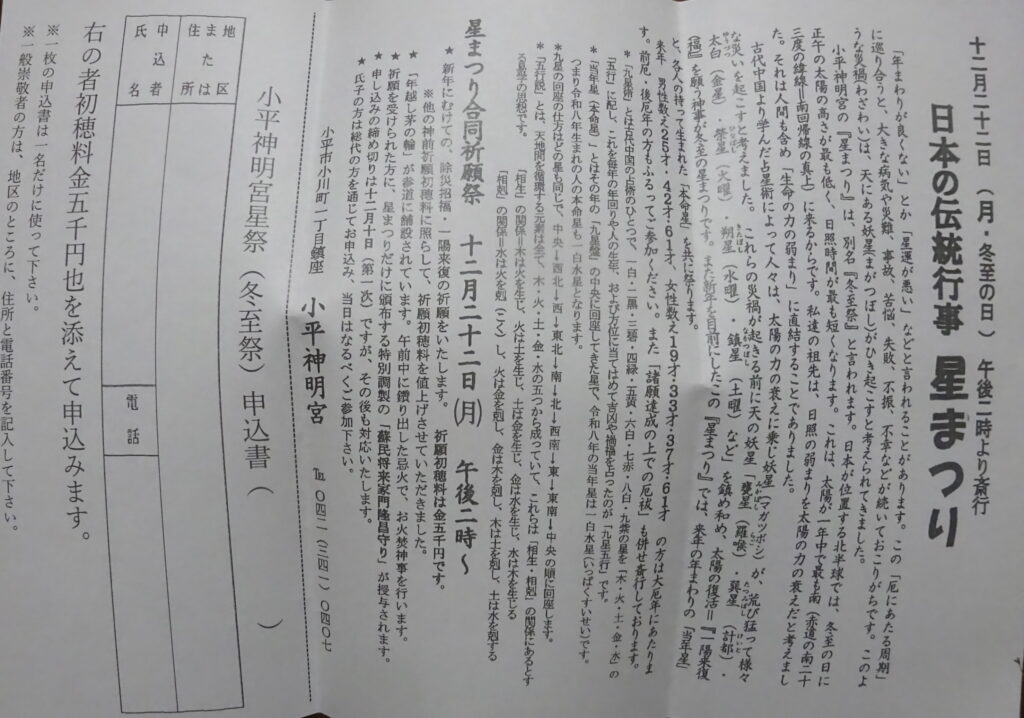 十二月二十二日（月・冬至の日）午後二時より斎行
日本の伝統行事 星まつり
「年まわりが良くない」とか「星運が悪い」などと言われることがあります。この「厄にあたる周期」
に巡り合うと、大きな病気や災難、事故、苦悩、失敗、不振、不幸などが続いておこりがちです。このよ
うな災禍わざわいは、天にある妖星（まがつぼし）がひき起こすと考えられてきました。
小平神明宮の『星まつり』は、別名『冬至祭』と言われます。日本が位置する北半球では、冬至の日に
正午の太陽の高さが最も低く、日照時間が最も短くなります。これは、太陽が一年中で最も南（赤道の南二十
三度の緯線＝南回帰線の真上）に来るからです。私達の祖先は、日照の弱まりを太陽の力の衰えだと考えまし
た。それは人間も含め「生命の力の弱まり」に直結することでありました。
古代中国より学んだ占星術によって人々は、太陽の力の衰えに乗じ妖星（マガツボシ）が、荒び猛って様々
な災いを起こすと考えました。これらの災禍が起きる前に天の妖星「甕星（羅喉）・巽星（計都）・
太白（金星）・熒星（火曜）・朔星（水曜）・鎮星（土曜）など」を鎮め和め、太陽の復活＝『一陽来復
（福）』を願う神事が冬至の星まつりです。また新年を目前にしたこの『星まつり』では、来年の年まわりの「当年星」
と、各人の持って生まれた「本命星」を共に祭ります。
来年、男性数え25才・42才・61才、女性数え19才・33才・37才・61才 の方は大厄年にあたりま
す。前厄・後厄年の方もふるってご参加ください。また「諸願達成の上での厄祓」も併せ斎行しております。
＊「九星術」とは古代中国の占術のひとつで、一白・二黒・三碧・四緑・五黄・六白・七赤・八白・九紫の星を「木・火・土・金・水」の
「五行」に配し、これを毎年の年回りや人の生年、および方位に当てはめて吉凶や禍福を占ったのが「九星五行」です。
＊「当年星（本命星）」とはその年の「九星盤」の中央に回座してきた星で、令和八年の当年星は一白水星（いっぱくすいせい）です。
つまり令和八年生まれの人の本命星も一白水星となります。
＊九星の回座の仕方はどの星も同じで、中央→西北→西→東北→南→北→西南→東→東南→中央の順に回座します。
＊「五行説」とは、天地間を循環する元素は金で、木・火・土・金・水の五つから成っていて、これらは「相生・相剋」の関係にあるとす
る易学の思想です。
「相生」の関係＝木は火を生じ、火は土を生じ、土は金を生じ、金は水を生じ、水は木を生じる
「相剋」の関係＝水は火を剋（こく）し、火は金を剋し、金は木を剋し、木は土を剋し、土は水を剋する
星まつり合同祈願祭 十二月二十二日㈪ 午後二時～
★ 新年にむけての、除災招福・一陽来復の祈願をいたします。 祈願初穂料は金五千円です。
※他の神前祈願初穂料に照らして、祈願初穂料を値上げさせていただきました。
★ 「年越し茅の輪」が参道に舗設されています。午前中に鑽り出した忌火で、お火焚神事を行います。
★ 祈願を受けられた方に、星まつりだけに頒布する特別調製の「蘇民将来家門隆昌守り」が授与されます。
★ 申し込みの締め切りは十二月十日（第一次）ですが、その後も対応いたします。
★ 氏子の方は総代の方を通じてお申込み、当日はなるべくご参加下さい。
小平市小川町一丁目鎮座 小平神明宮 ℡ 〇四二（三四一）〇四〇七
小平神明宮星祭（冬至祭）申込書（ ）
地区
または
住所
電話
申込者
氏名
右の者初穂料金五千円也を添えて申込みます。
※一枚の申込書は一名だけに使って下さい。
※一般崇敬者の方は、地区のところに、住所と電話番号を記入して下さい。